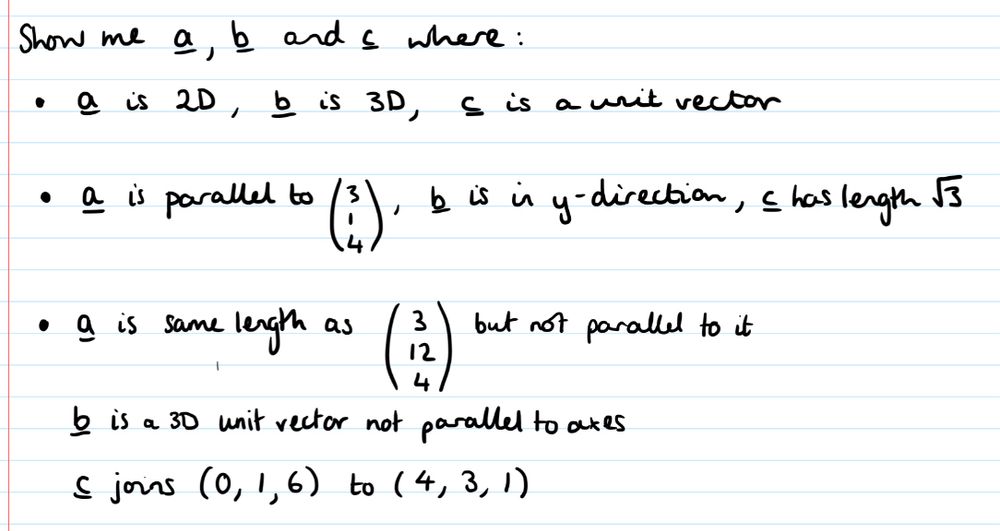 Show me a, b and c where:
• a is 2D, b is 3D, c is a unit vector
• a is parallel to (3 1 4), b is in y-direction, c has length √3
• a is same length as (3 12 4) but not parallel to it
b is a 3D unit vector not parallel to axes
c joins (0, 1, 6) to (4, 3, 1)